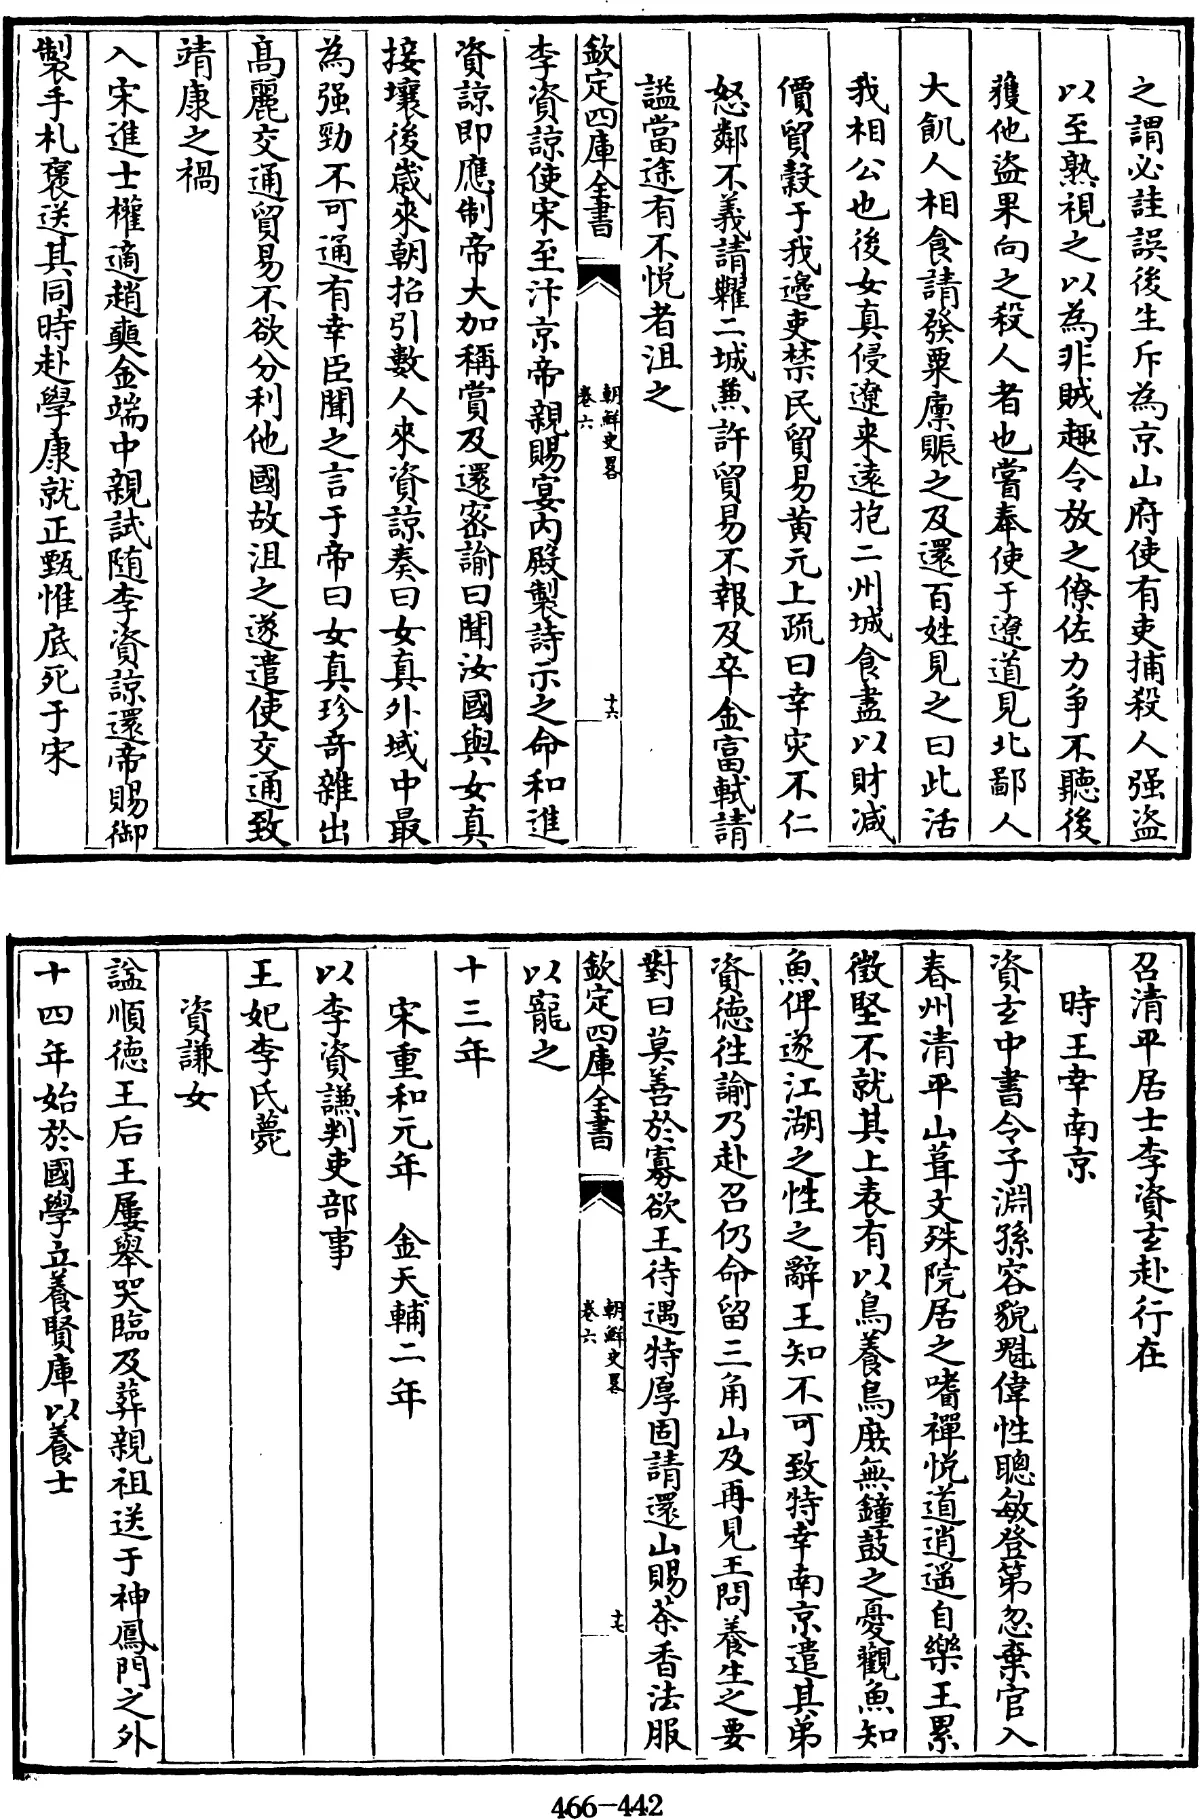 之謂必註誤後生斥為京山府使有吏捕殺人强盗
以至熟視之以為非賊趣令放之僚佐力争不聽後
獲他盗果向之殺人者也嘗奉使于遼道見北鄙人
大飢人相食請發粟廪賑之及還百姓見之曰此活
我相公也後女真侵遼來逺抱二州城食盡以財減
價貿穀于我邉吏禁民貿易黄元上疏曰幸灾不仁
怒鄰不義請糶二城兼許貿易不報及卒金富軾請
謚當途有不悦者沮之
欽定四庫全書
朝鮮史畧
卷六
十六
李資諒使宋至汴京帝親賜宴内殿製詩示之命和進
資諒即應制帝大加稱賞及還宻諭曰聞汝國與女真
接壤後歳來朝招引數人來資諒奏曰女真外域中最
為强勁不可通有幸臣聞之言于帝曰女真珍竒雜出
髙麗交通貿易不欲分利他國故沮之遂遣使交通致
靖康之禍
入宋進士權適趙奭金端中親試随李資諒還帝賜御
製手札褒送其同時赴學康就正甄惟底死于宋
召清平居士李資𤣥赴行在
時王幸南京
資𤣥中書令子淵孫容貌魁偉性聰敏登第忽棄官入
春州清平山葺文殊院居之嗜禪悦道逍遥自樂王累
徴堅不就其上表有以鳥養鳥庶無鐘鼓之憂觀魚知
魚俾遂江湖之性之辭王知不可致特幸南京遣其弟
資徳徃諭乃赴召仍命留三角山及再見王問養生之要
對曰莫善於寡欲王待遇特厚固請還山賜茶香法服
欽定四庫全書
朝鮮史畧
卷六
十七
以寵之
十三年
宋重和元年 金天輔二年
以李資謙判吏部事
王妃李氏薨
資謙女
諡順徳王后王屢舉哭臨及葬親祖送于神鳳門之外
十四年始於國學立養賢庫以養士
466-442